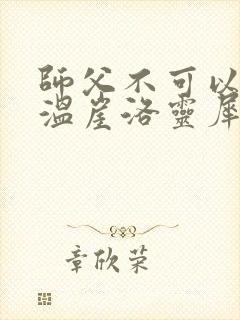 師父不可以
溫崖洛靈犀
章欣荣